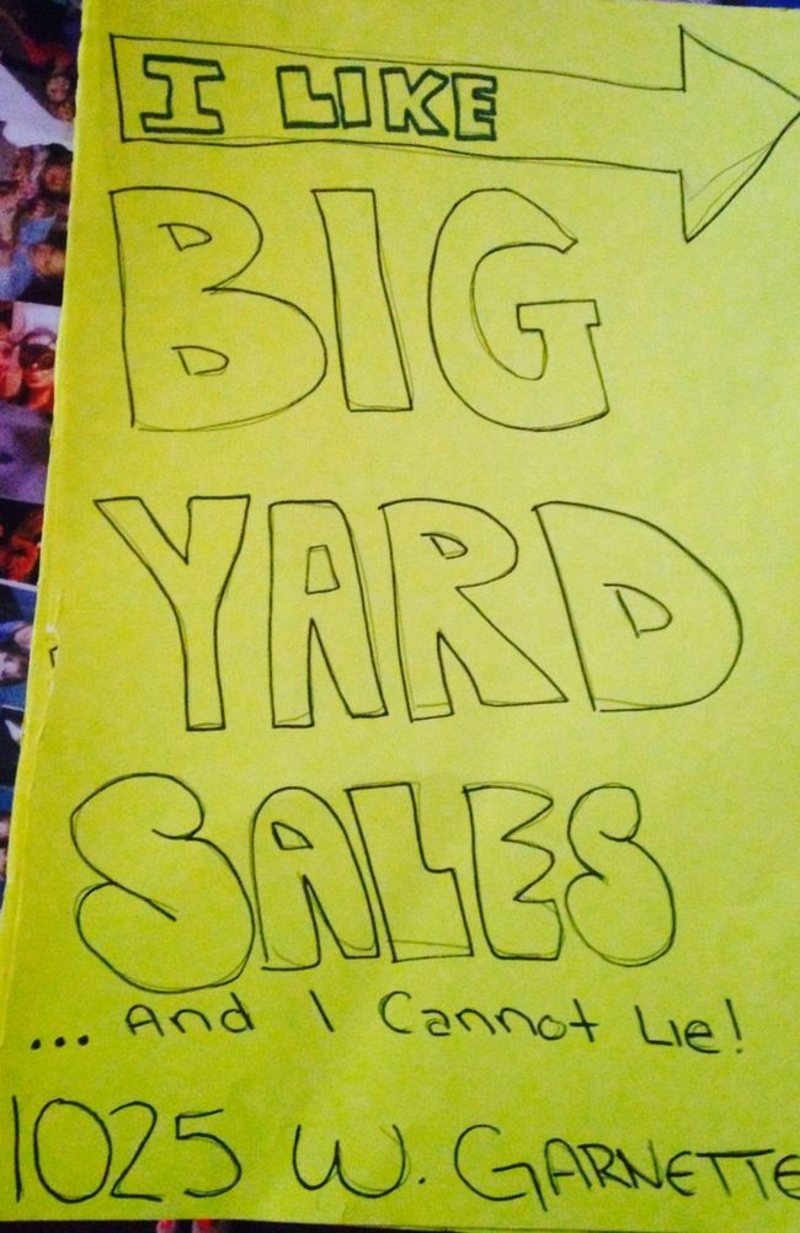 I LIKE
BIG
YARD
SALES
... And I Cannot Lie!
1025 W. GARNETTE